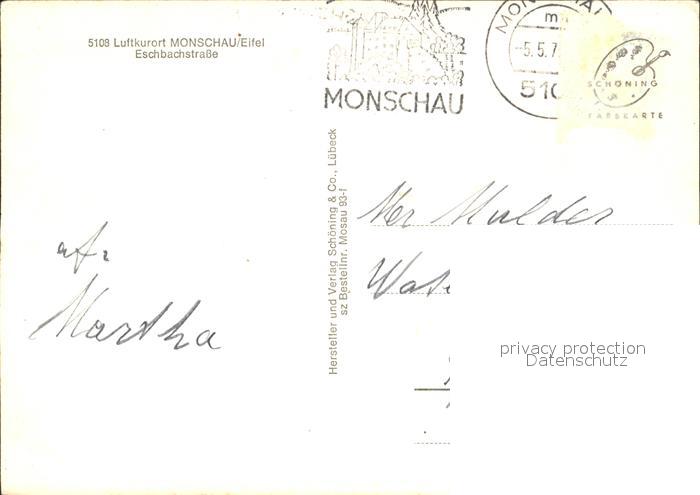 5108 Luftkurort MONSCHAU/Eifel
Eschbachstraße
MONSCHAU
-5.5.7
510
SCHÖNING
FARBKARTE
Hersteller und Verlag Schöning & Co., Lübeck
sz Bestellnr. Mosau 93-f
Mulder
afz
Martha
privacy protection
Datenschutz